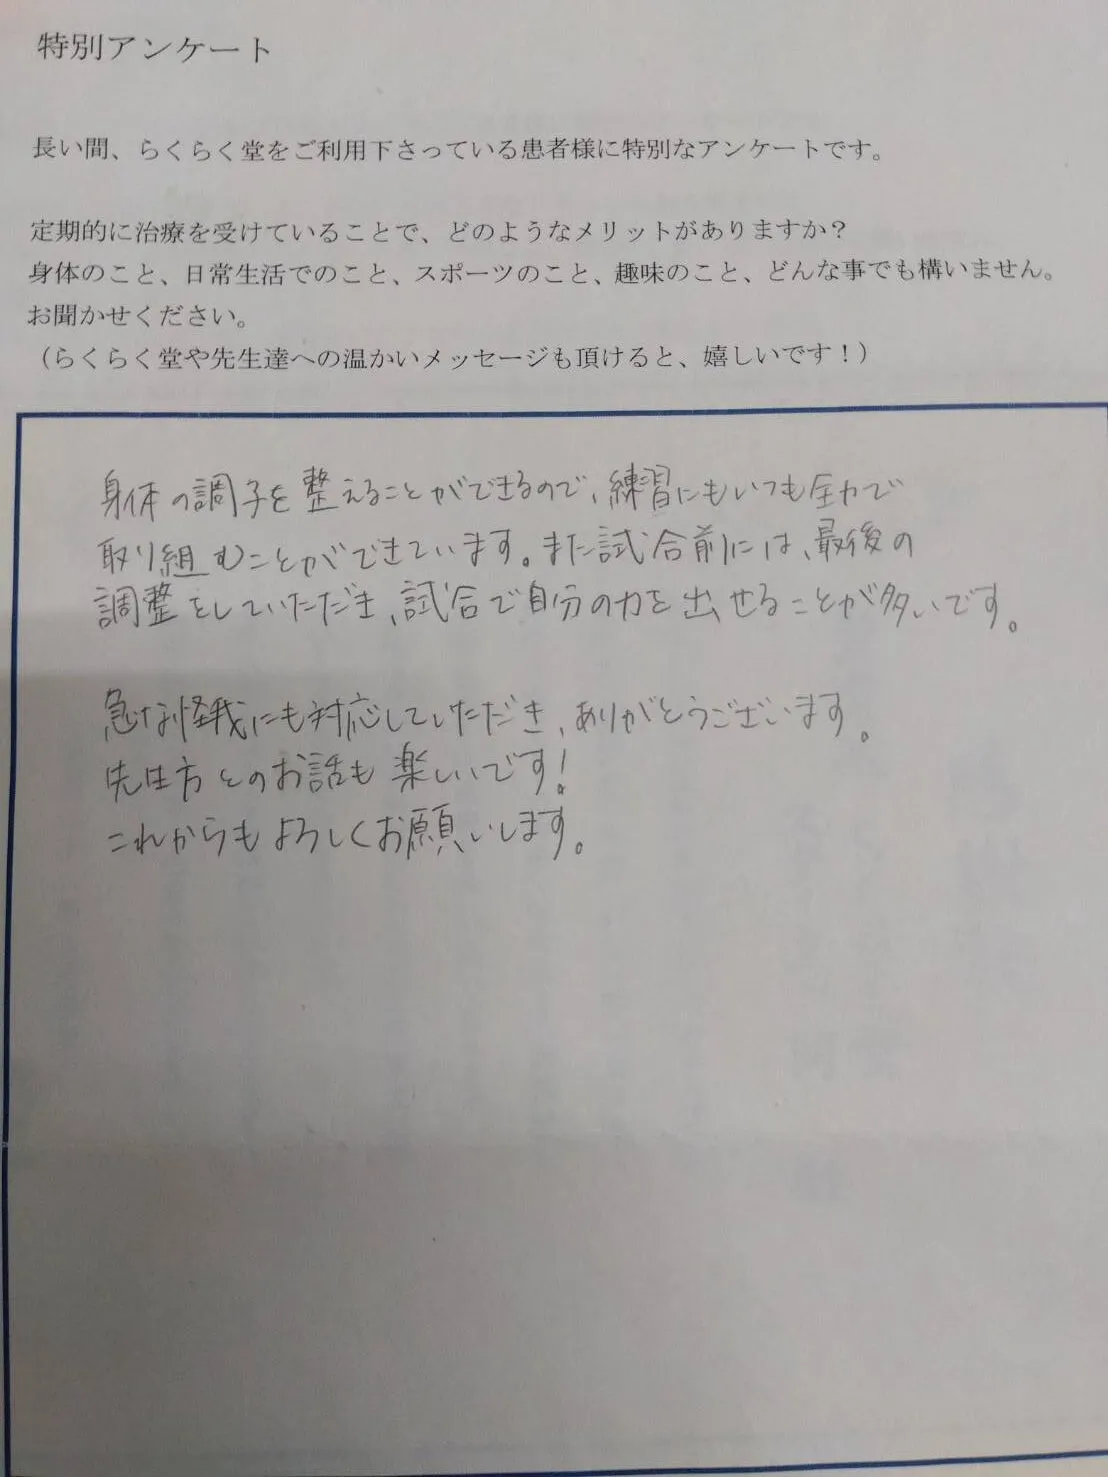 特別アンケート
長い間、らくらく堂をご利用下さっている患者様に特別なアンケートです。
定期的に治療を受けていることで、どのようなメリットがありますか？
身体のこと、日常生活でのこと、スポーツのこと、趣味のこと、どんな事でも構いません。
お聞かせください。
（らくらく堂や先生達への温かいメッセージも頂けると、嬉しいです！）
身体の調子を整えることができるので、練習にもいつも全力で
取り組むことができています。また試合前には、最後の
調整をしていただき、試合で自分の力を出せることが多いです。
急な怪我にも対応していただき、ありがとうございます。
先生方とのお話も楽しいです！
これからもよろしくお願いします。